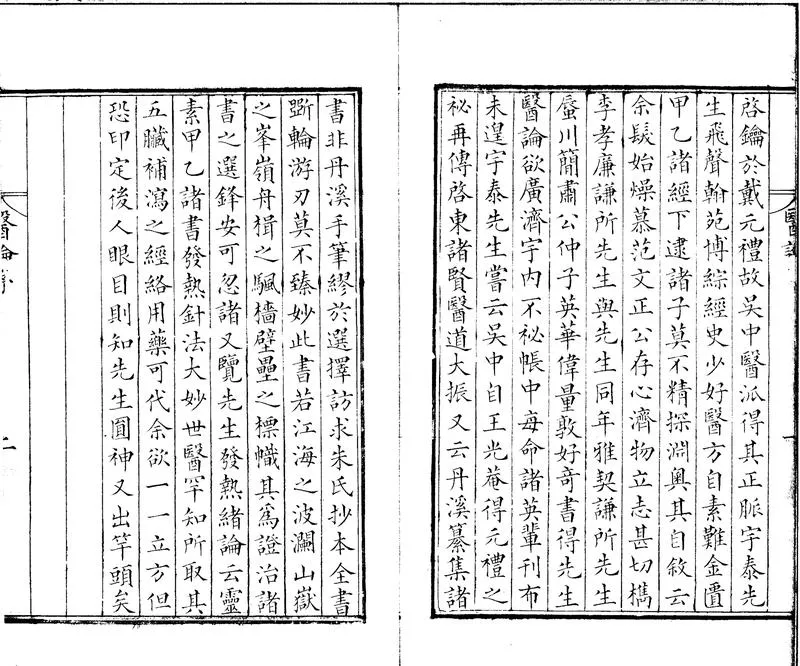 啓鑰於戴元禮故吳中醫派得其正脈宇泰先
生飛聲翰苑博綜經史少好醫方自素難金匱
甲乙諸經下逮諸子莫不精探淵奧其自敘云
余髮始燥慕范文正公存心濟物立志甚切檇
李孝廉謙所先生與先生同年雅契謙所先生
蜃川簡肅公仲子英華偉量敦好奇書得先生
醫論欲廣濟宇內不祕帳中每命諸英輩刊布
未遑宇泰先生嘗云吳中自王光菴得元禮之
祕再傳啓東諸賢醫道大振又云丹溪纂集諸
書非丹溪手筆繆於選擇訪求朱氏抄本全書
斲輪游刃莫不臻妙此書若江海之波瀾山嶽
之峯嶺舟楫之颿檣壁壘之標幟其爲證治諸
書之選鋒安可忽諸又覽先生發熱緒論云靈
素甲乙諸書發熱針法大妙世醫罕知所取其
五臟補瀉之經絡用藥可代余欲一一立方但
恐印定後人眼目則知先生圓神又出竿頭矣
醫論序
二